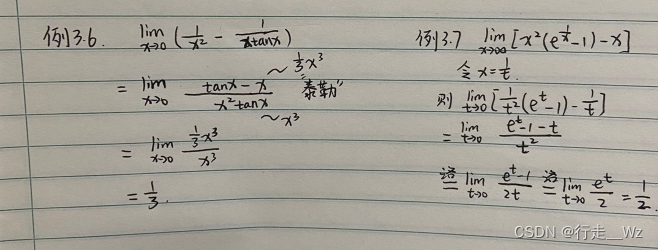 例3.6 lim x→0 (1/x² - 1/(xtanx))
= lim x→0 (tanx - x)/(x²tanx) ~ 1/3 x³ "泰勒" ~x³
= lim x→0 (1/3 x³)/x³
= 1/3.
例3.7 lim x→∞ [x²(e^(1/x) - 1) - x]
令 x = 1/t.
则 lim t→0 [1/t² (e^t - 1) - 1/t]
= lim t→0 (e^t - 1 - t)/t²
洛= lim t→0 (e^t - 1)/2t 洛= lim t→0 e^t/2 = 1/2.
CSDN @行走__Wz